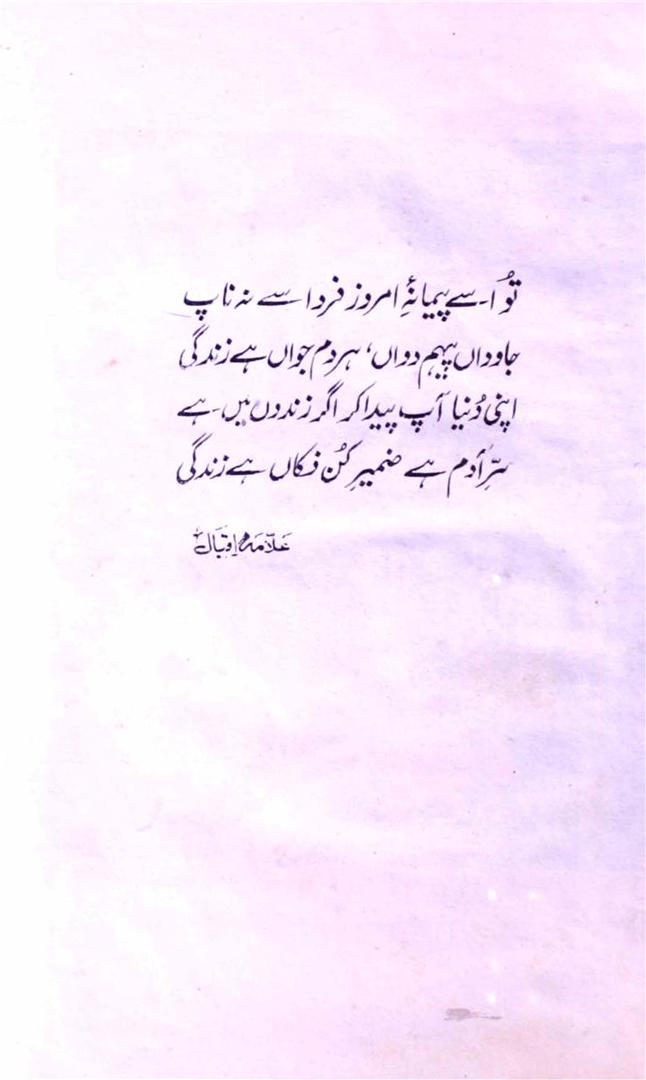 تُو اسے پیمانۂِ امروز فردا سے نہ ناپ
جاوداں پیہم دواں، ہر دم جواں ہے زندگی
اپنی دُنیا آپ پیدا کر اگر زندوں میں ہے
سِرِّ آدم ہے ضمیرِ کُن فکاں ہے زندگی
علاّمہ اقبالؒ